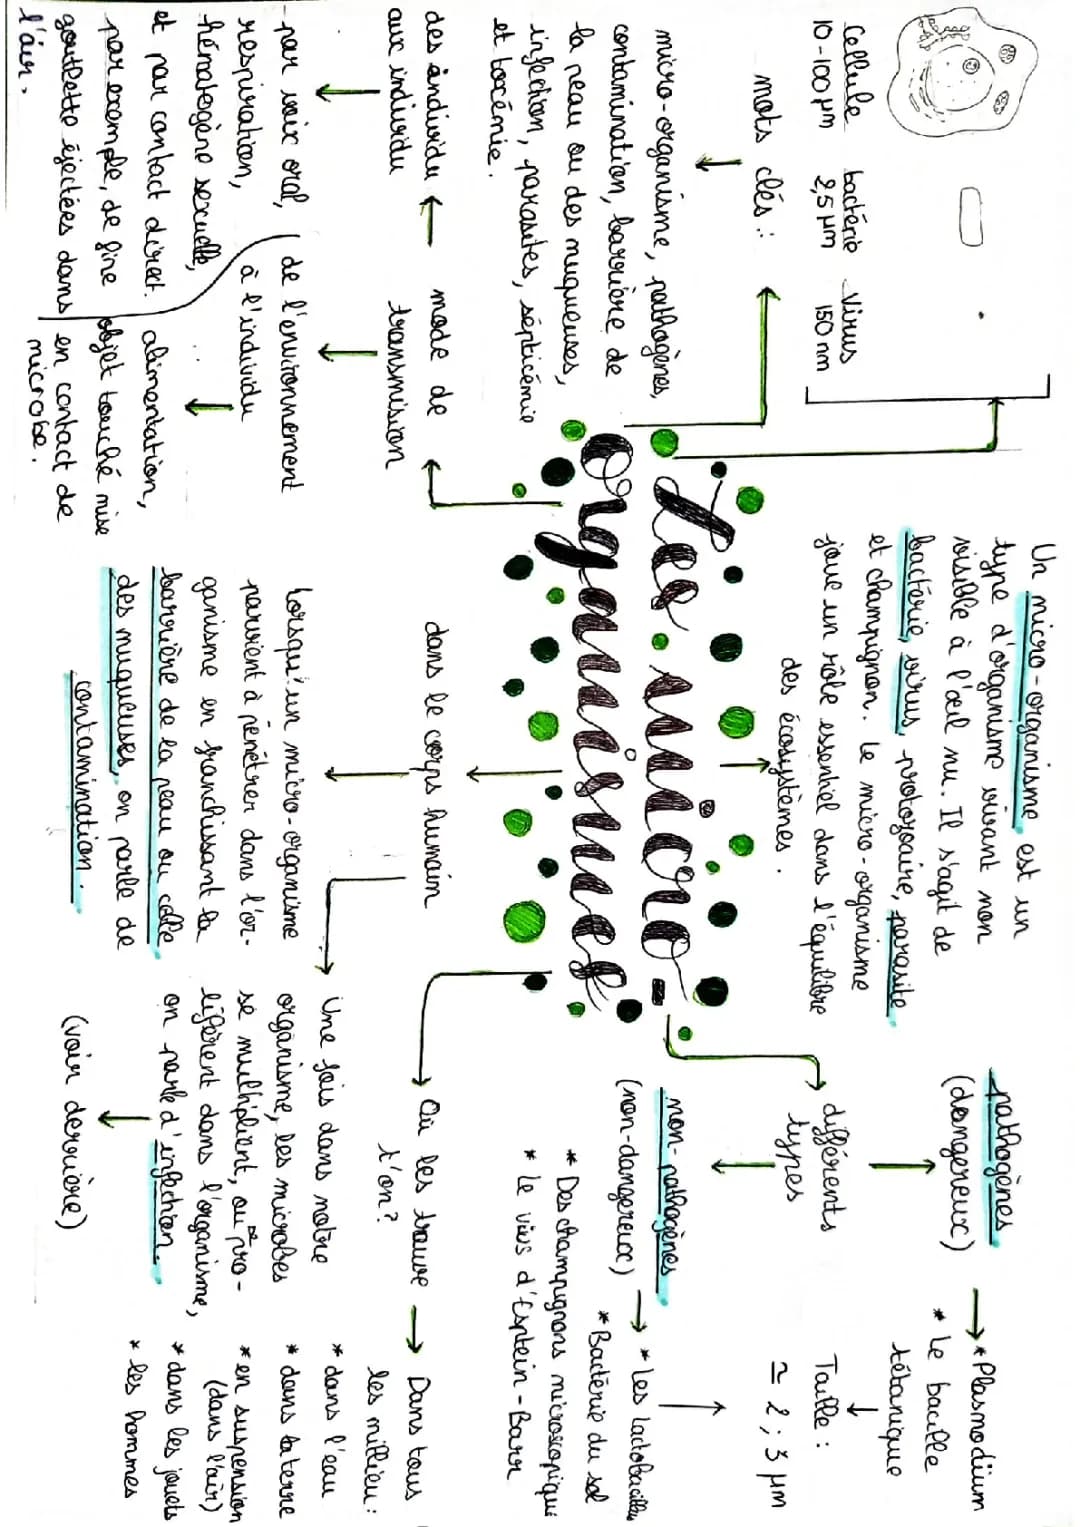 Cellule bactérie Virus
10-100 µm 2,5 µm 150 nm
mots clés :
micro-organisme, pathogènes,
contamination, barrière de
la peau ou des muqueuses,
infection, parasites, septicémie
et
mode de
transmission
des individu
aux individu
- par voix oral,
respiration,
hématogène sexuelle,
et par contact direct.
par exemple, de fine
gouttelette éjectées dans
l'air.
de l'environnement
à l'individu
alimentation,
objet touché mise
en contact de
microbe.
Un micro-organisme, est un
type d'organisme vivant non
visible à l'œil nu. Il s'agit de
bactérie, virus, protozoaire, parasite
et champignon. le micro-organisme
joue un rôle essentiel dans l'équilibre
des écosystèmes.
Les micro-
organismes
dans le corps humain
Lorsqu'un micro-organisme
parvient à pénétrer dans l'or-
ganisme en franchissant la
barrière de la peau ou celle
des muqueuses, on parle de
contamination.
Une fois dans notre
organisme, les microbes
se multiplient, ou pro-
lifèrent dans l'organisme,
on parle d'infection.
(voir derrière)
différents
types
pathogènes
(dangereux)
* Plasmodium
* Le bacille
tétanique
Taille :
≃ 2 ; 3 µm
non-pathogènes
(non-dangereux)
* Les lactobacilles
* Bactérie du sol
* Des champignons microscopique
* Le virus d'Esptein-Barr
Où les trouve
t'on ?
Dans tous
les millieu :
* dans l'eau
* dans la terre
* en suspension
(dans l'air)
* dans les jouets
* les hommes